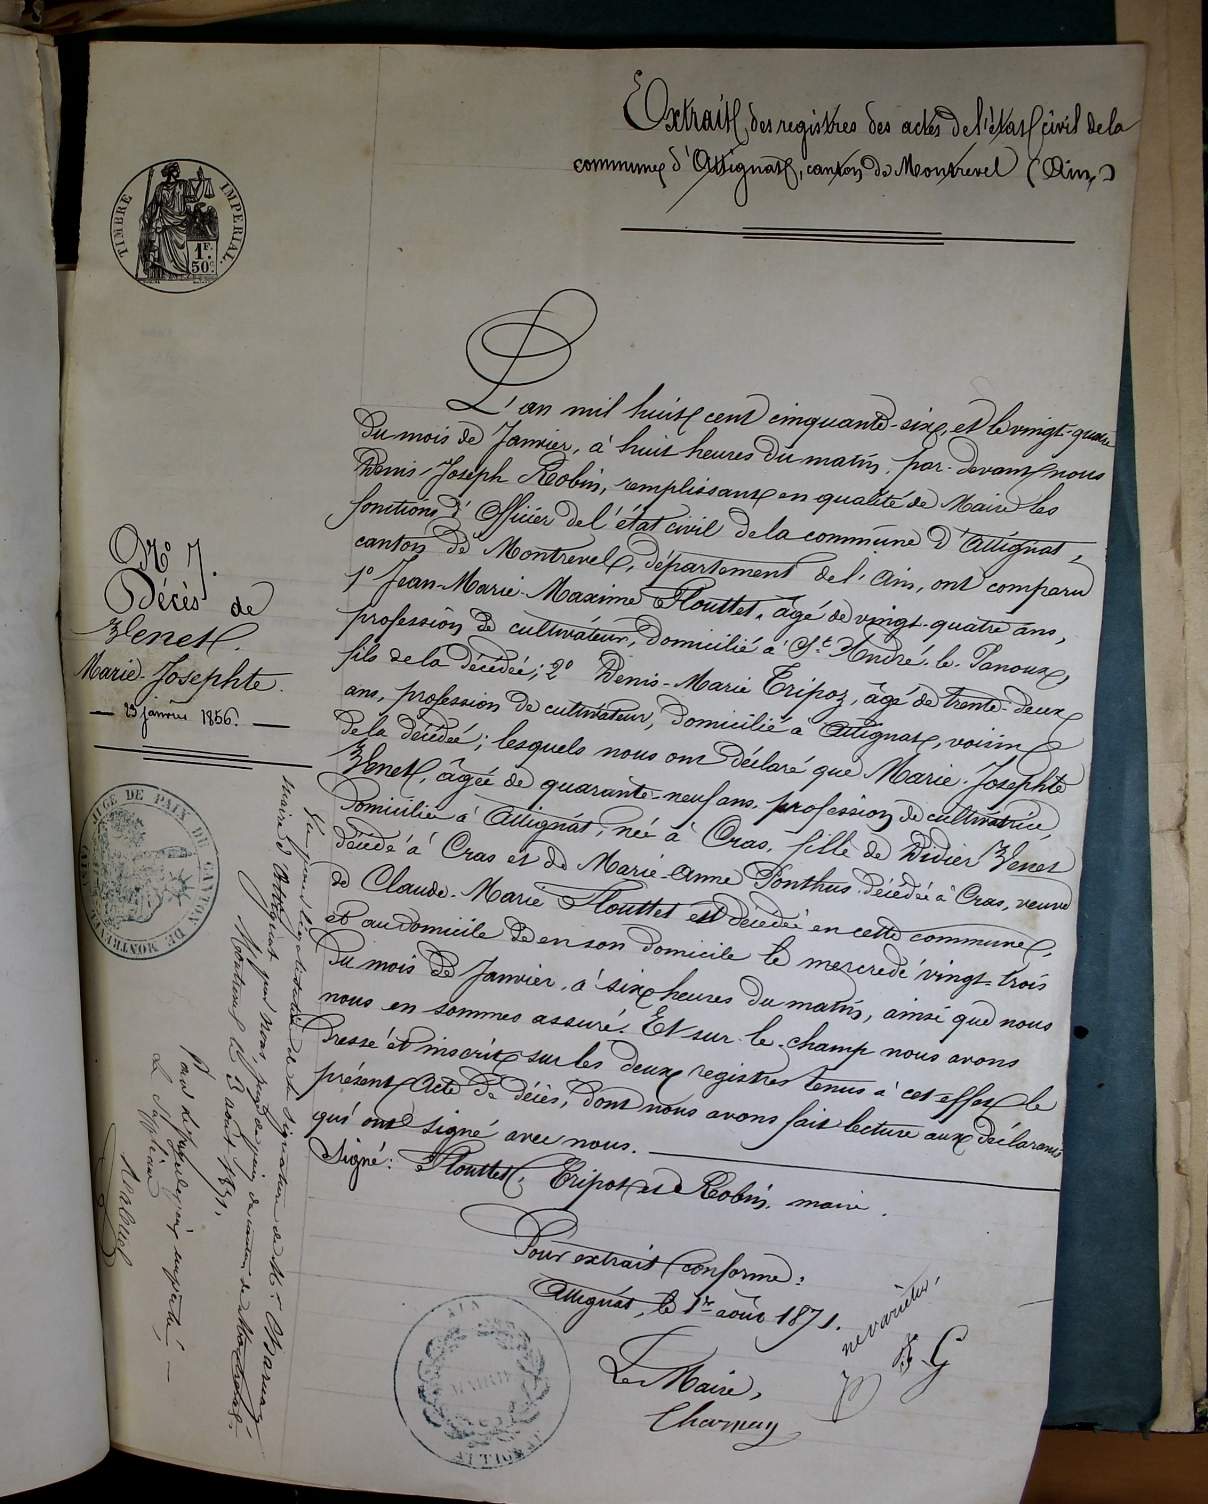 Extrait des registres des actes de l'état civil de la
commune d'Attignat, canton de Montrevel (Ain)
TIMBRE IMPERIAL.
1F.
50c.
L'an mil huit cent cinquante-six, et le vingt-quatre
du mois de Janvier, à huit heures du matin, par-devant nous
Denis-Joseph Robin, remplissant en qualité de Maire les
fonctions d'Officier de l'état civil de la commune d'Attignat,
canton de Montrevel, département de l'Ain, ont comparu
1° Jean-Marie-Maxime Flouttet, âgé de vingt-quatre ans,
profession de cultivateur, domicilié à St. André-le-Panoux,
fils de la décédée; 2° Denis-Marie Tripoz, âgé de trente-deux
ans, profession de cultivateur, domicilié à Attignat, voisin
de la décédée; lesquels nous ont déclaré que Marie-Josephte
Venet, âgée de quarante-neuf ans, profession de cultivatrice,
domiciliée à Attignat, née à Cras, fille de Didier Venet
décédé à Cras et de Marie-Anne Ponthus décédée à Cras, veuve
de Claude-Marie Flouttet est décédée en cette commune,
et au domicile de en son domicile le mercredi vingt-trois
du mois de Janvier, à six heures du matin, ainsi que nous
nous en sommes assuré. Et sur-le-champ nous avons
dressé et inscrit sur les deux registres tenus à cet effet le
présent Acte de décès, dont nous avons fait lecture aux déclarants
qui ont signé avec nous.
Signé: Flouttet, Tripoz et Robin, maire.
Pour extrait conforme:
Attignat, le 1er août 1871.
Le Maire,
Charnay
ne varietur
N° 7.
Décès de
Venet.
Marie-Josephte.
23 janvier 1856.
JUGE DE PAIX DU CANTON DE MONTREVEL
(AIN)
Vu pour légalisation de la signature de Mr. Charnay
maire d'Attignat par nous, juge de paix du canton de Montrevel.
Montrevel le 3 août 1871.
Pour le juge de paix empêché,
Le Suppléant
MAIRIE